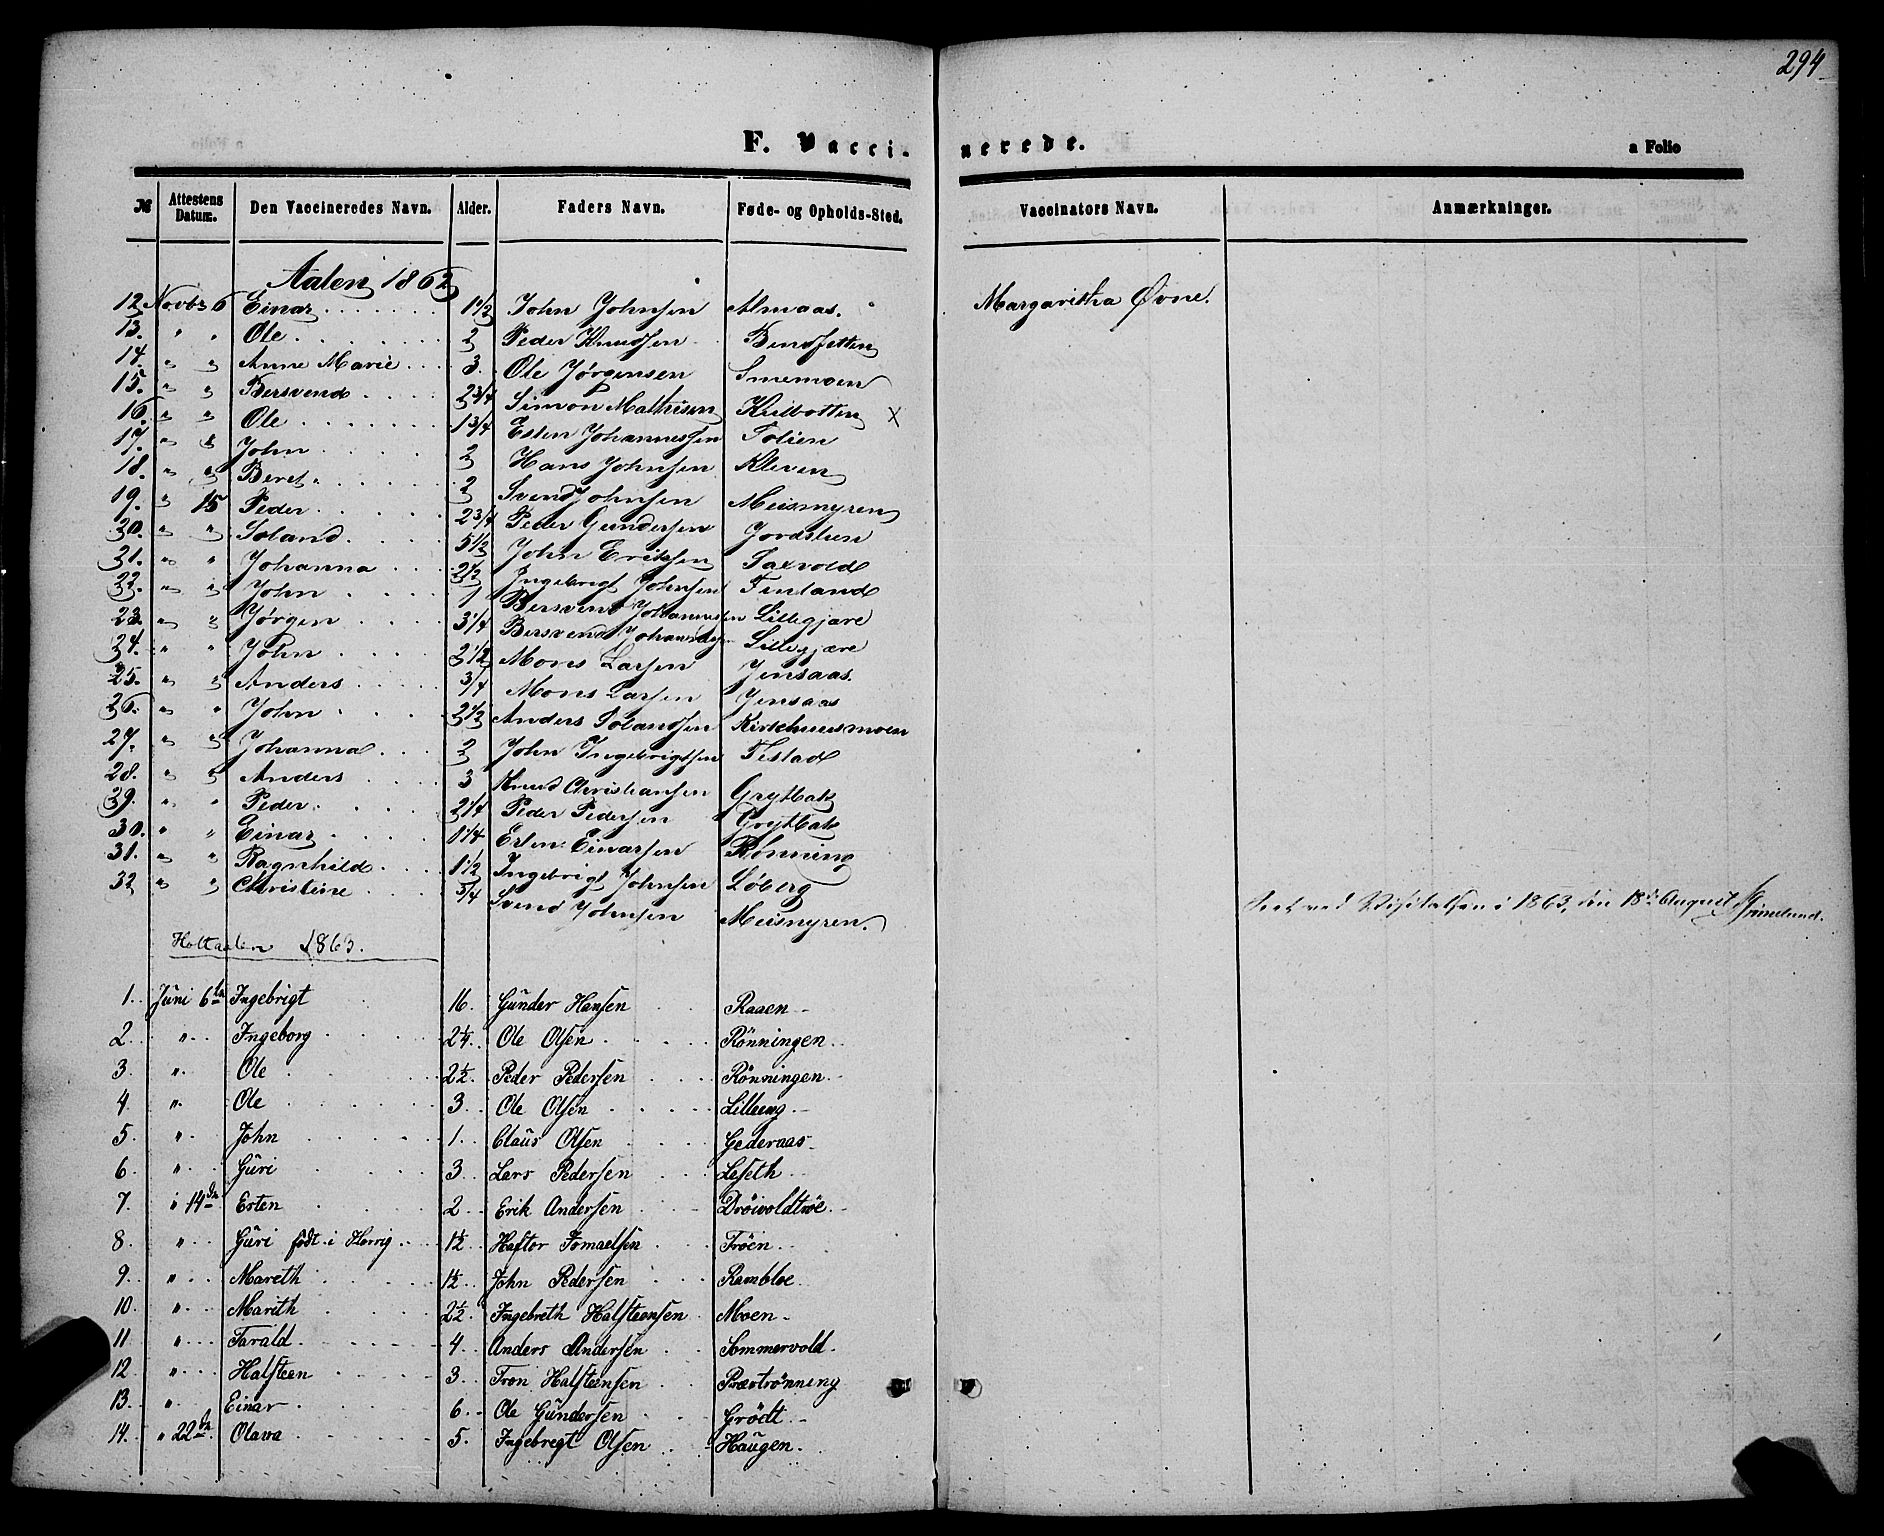 294
F. Vaccinerede.
a Folio
№ Attestens Datum. Den Vaccineredes Navn. Alder. Faders Navn. Føde- og Opholds-Sted. Vaccinators Navn. Anmærkninger.
Aalen 1862
12 Novbr 6 Einar 1 1/2 John Johnsen Almaas. Margaritha Øvne.
13. " " Ole 2 Peder Knudsen
14. " " Anne Marie 3. Ole Jørgensen Smemoen
15. " " Bersvend 2 3/4 Simon Mathisen Kulbotten X
16. " " Ole 1 3/4 Esten Johannessen Tolien
17. " " John 2 Hans Johnsen Kleven
18. " " Beret 2 Svend Johnsen Meismyren
19. " 15 Peder 2 3/4 Peder Gundersen Jordstuen
20. " " Soland 5 1/2 John Eriksen Saxvold
21. " " Johanna 2 1/2 Ingebrigt Johnsen Finland
22. " " John 1 Bersvend Johannesen Lillegjære
23. " " Jørgen 3 1/4 Bersvend Johannesen Lillegjære
24. " " John 2 1/2 Mons Larsen Jensaas.
25. " " Anders 3/4 Mons Larsen Jensaas
26. " " John 2 1/2 Anders Solandsen
27. " " Johanna 2 John Ingebrigtsen Testad
28. " " Anders 3 Knud Christiansen Grytbak
29. " " Peder 2 1/4 Peder Pedersen Grytbak
30. " " Einar 1 1/4 Esten Einarsen Rønning
31. " " Ragnhild 1 1/2 Ingebrigt Johnsen Løberg
32 " " Christine 5/4 Svend Johnsen Meismyren.
Seet ved Visitatsen i 1863, den 18de August Grimelund.
Holtaalen 1863.
1. Juni 6te Ingebrigt 16. Gunder Hansen Raaen
2. " Ingeborg 2 1/4. Ole Olsen Rönningen
3. " Ole 2 1/2. Peder Pedersen Rönningen
4. " Ole 3. Ole Olsen Lilleeng
5. " John 1. Claus Olsen Gederaas
6. " Guri 3. Lars Pedersen Leseth
7. " 14de Esten 2. Erik Andersen Dröivoldtröe
8. " Guri födt i Horrig 1 1/2. Haftor Tomaelsen Tröen
9. " Mareth 1 1/2. John Pedersen Rambloe
10. " Marith 2 1/2. Ingebreth Halsteensen Moen
11. " Tarald 4. Anders Andersen Sommervold
12. " Halsteen 3. Tron Halsteensen Præströnning
13. " Einar 6. Ole Gundersen Grödt
14. " 22de Olava 5. Ingebregt Olsen Haugen